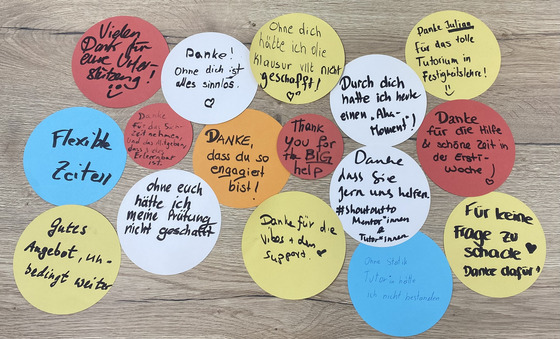 Vielen
Dank für
eure Unter-
stützung!
Danke!
Ohne dich ist
alles sinnlos.
Ohne dich
hätte ich die
Klausur vllt nicht
geschafft!
Danke Juliane
Für das tolle
Tutorium in
Festigkeitslehre!
Durch dich
hatte ich heute
einen „Aha-
Moment"!
Flexible
Zeiten
Danke
für das
nehmen,
und das Mitgeben
ist.
DANKE,
dass du so
engagiert
bist!
Thank
you for
the BIG
help
Danke
für die Hilfe
& schöne Zeit in
der Ersti-
woche!
ohne euch
hätte ich
meine Prüfung
nicht geschafft
Danke
dass Sie
gern uns helfen.
#shoutoutto
Mentor*innen
&
Tutor*innen
gutes
Angebot, un-
bedingt weiter
Danke für die
Vibes + den
Support.
Ohne Statik
Tutorin hätte
ich nicht bestanden
Für keine
Frage zu
schade
Danke dafür!